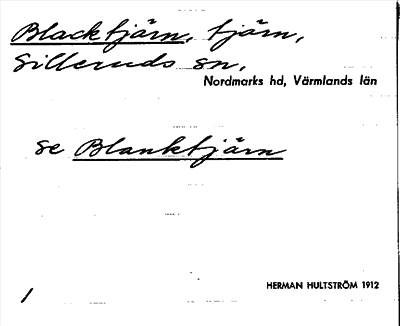 Blacktjärn, tjärn,
Silleruds sn,
Nordmarks hd, Värmlands län
se Blanktjärn
HERMAN HULTSTRÖM 1912
1